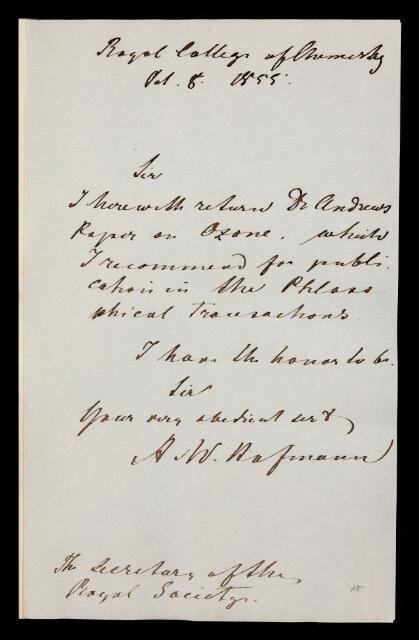 Royal College of Chemistry
Oct. 8. 1855.
Sir
I herewith return Dr Andrews
Paper on Ozone, which
I recommend for publi-
cation in the Philoso
phical Transactions.
I have the honor to be.
Sir
Your very obedient servt
A. W. Hofmann
The Secretary of the
Royal Society.